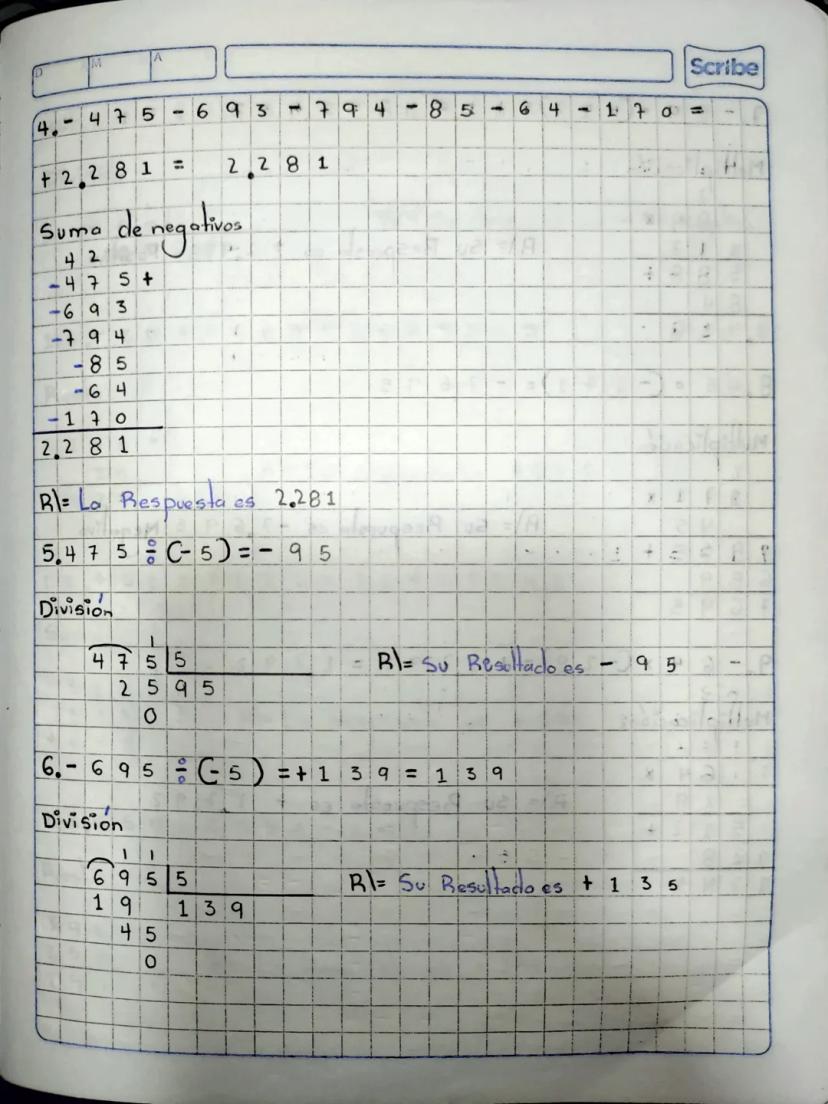 D M A Scribe
4.- 475-693-794-85-64-170=
+2.281 = 2.281
Suma de negativos
42
-475+
-693
-794
-85
-64
-170
2.281
R\= La Respuesta es 2.281
5. 475 ÷ (-5) = -95
División
1
475 5 R\= Su Resultado es -95
25 95
0
6.- 695 ÷ (-5) = +139 = 139
División
11
695 5 R\= Su Resultado es +135
19 139
45
0